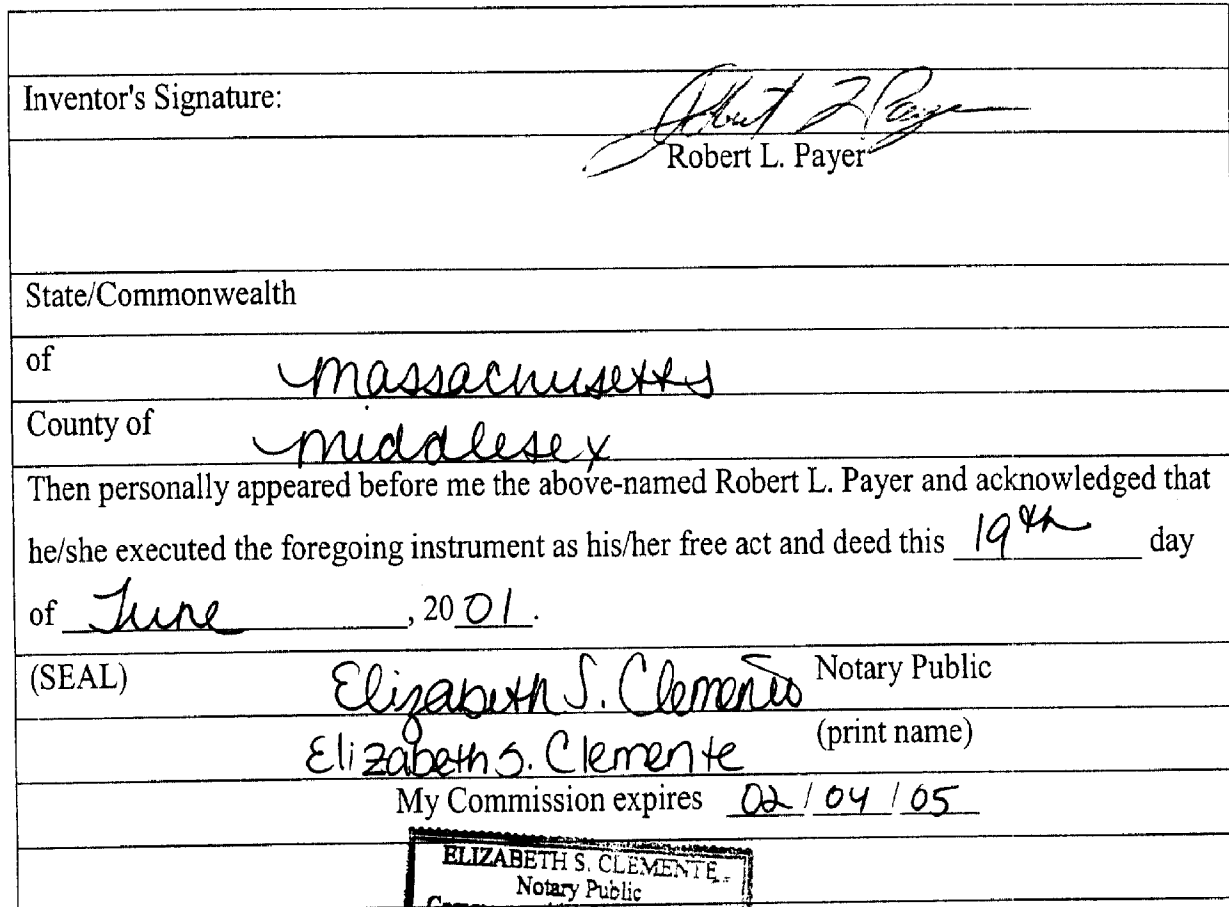 Inventor's Signature:
Robert L. Payer
Robert L. Payer
State/Commonwealth
of Massachusetts
County of Middlesex
Then personally appeared before me the above-named Robert L. Payer and acknowledged that
he/she executed the foregoing instrument as his/her free act and deed this 19th day
of June, 2001.
(SEAL) Elizabeth S. Clemente Notary Public
Elizabeth S. Clemente (print name)
My Commission expires 02/04/05
ELIZABETH S. CLEMENTE
Notary Public